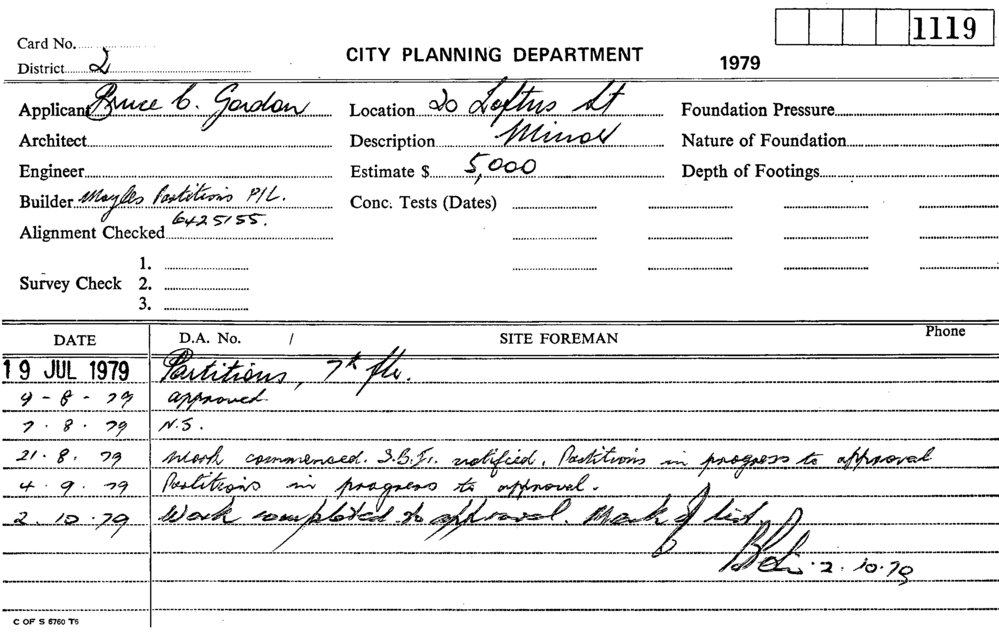 1119
Card No.
CITY PLANNING DEPARTMENT 1979
District 2
Applicant Bruce C. Gordon Location 20 Loftus St Foundation Pressure
Architect Description Minor Nature of Foundation
Engineer Estimate $ 5,000 Depth of Footings
Builder Mayles Partitions P/L. Conc. Tests (Dates)
6425155.
Alignment Checked
1.
Survey Check 2.
3.
DATE D.A. No. / SITE FOREMAN Phone
19 JUL 1979 Partitions, 7th flr.
9-8-79 approved
7.8.79 N.S.
21.8.79 Work commenced. notified. Partitions in progress to approval
4.9.79 Partitions in progress to approval.
2.10.79 Work completed to approval. Mark off list
2.10.79
C OF S 6760 T6